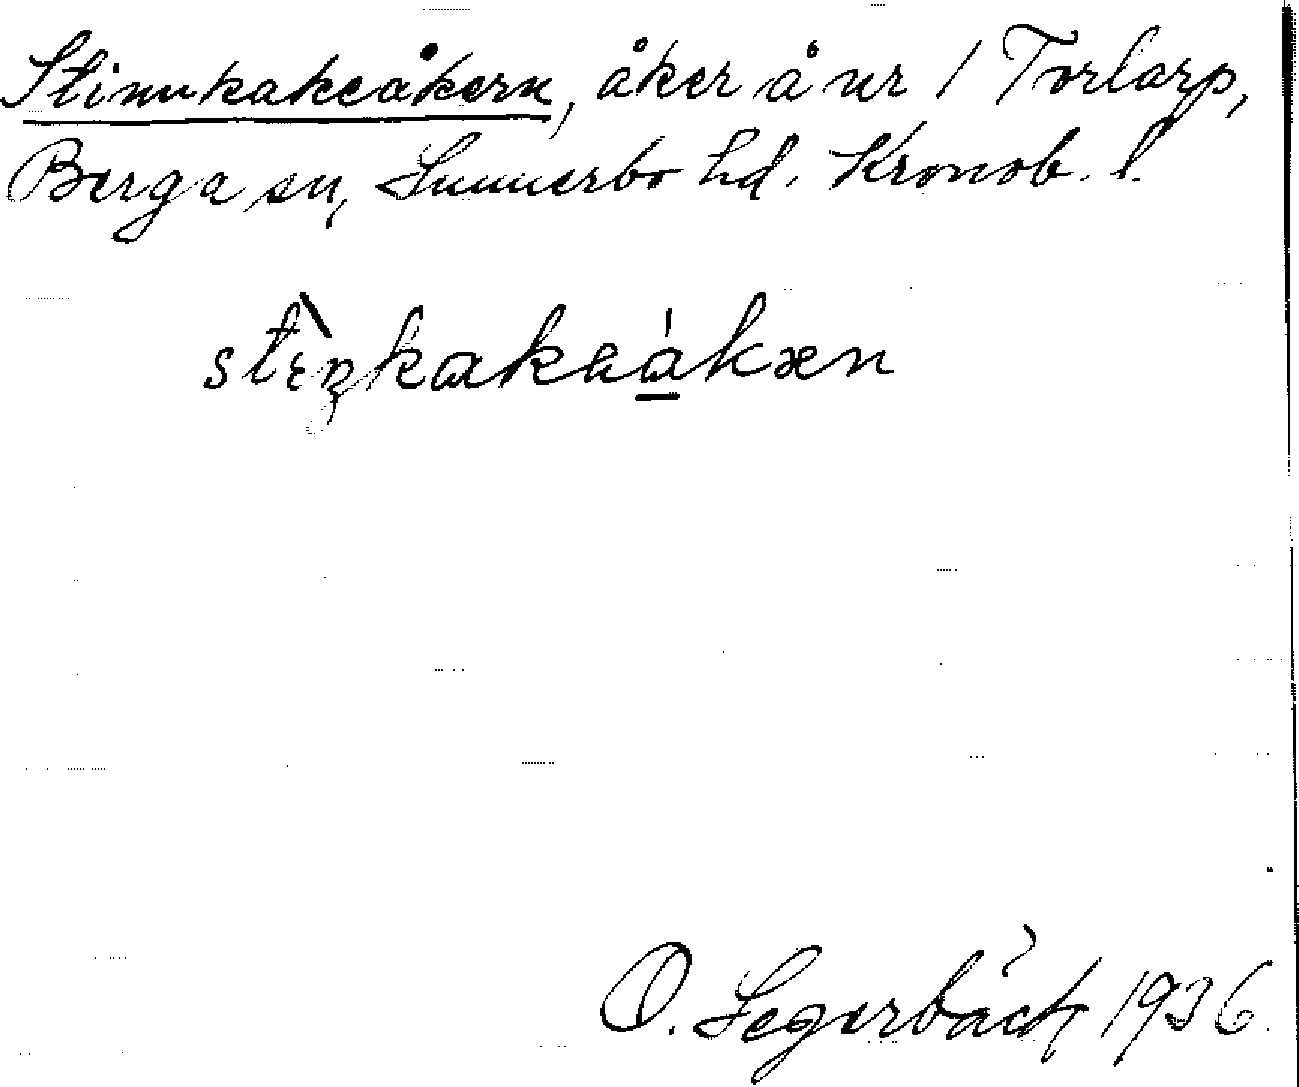 Stinnkakeåkern, åker å nr 1 Torlarp,
Berga sn, Sunnerbo hd. Kronob. l.
O. Segerbäck 1936.